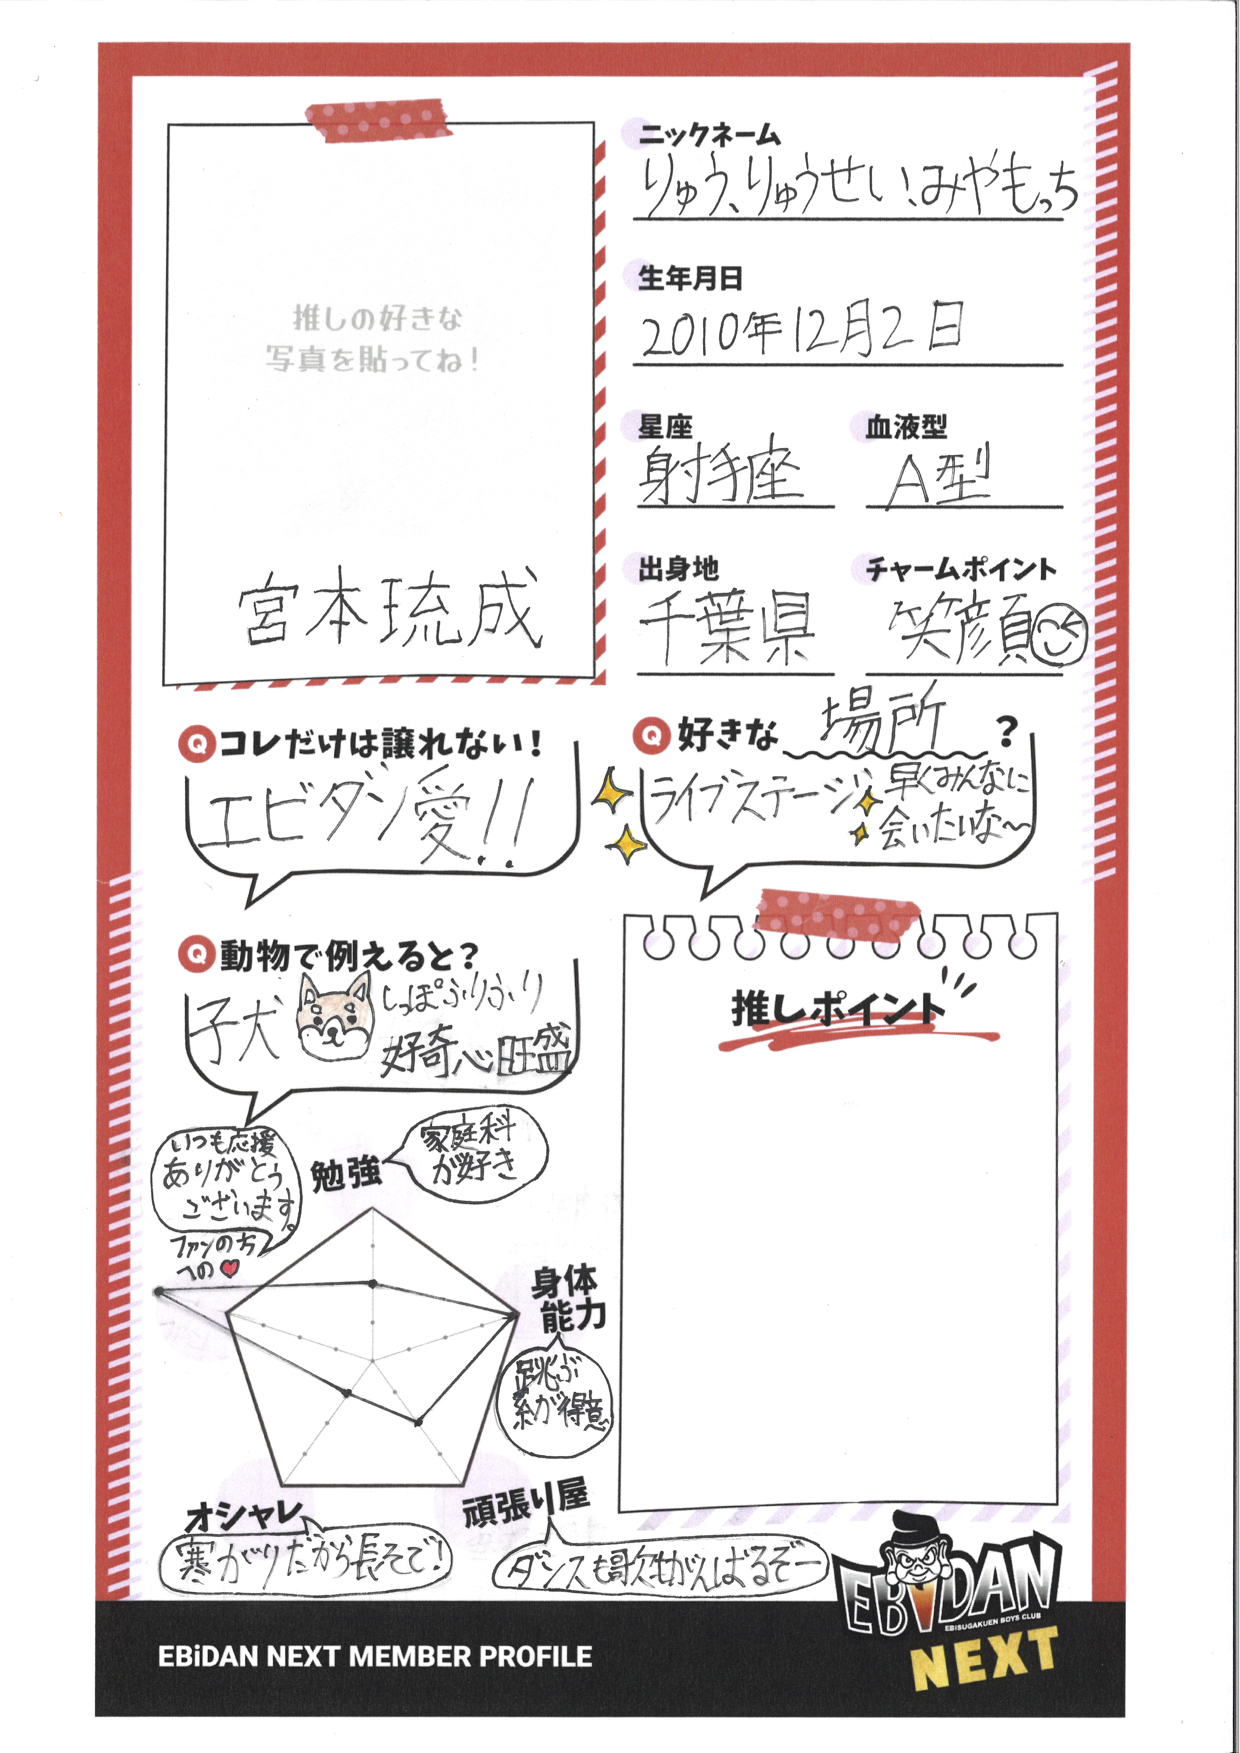 ニックネーム
りゅう、りゅうせい、みやもっち
推しの好きな
写真を貼ってね！
宮本琉成
生年月日
2010年12月2日
星座
射手座
血液型
A型
出身地
千葉県
チャームポイント
笑顔
Q コレだけは譲れない！
エビダン愛!!
Q 好きな 場所 ？
ライブステージ
早くみんなに
会いたいな〜
Q 動物で例えると？
子犬
しっぽふりふり
好奇心旺盛
推しポイント
いつも応援
ありがとう
ございます。
ファンの方
への
勉強
家庭科
が好き
身体
能力
跳ぶ
系が得意
オシャレ
寒がりだから長そで!
頑張り屋
ダンスも歌もがんばるぞー
EBiDAN
EBISUGAKUEN BOYS CLUB
NEXT
EBiDAN NEXT MEMBER PROFILE